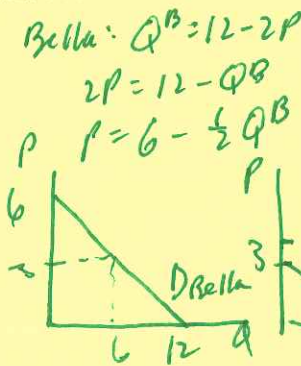 Bella: Q^B = 12 - 2P
2P = 12 - Q^B
P = 6 - 1/2 Q^B
P
P
6
3
DBella
3
6 12 Q